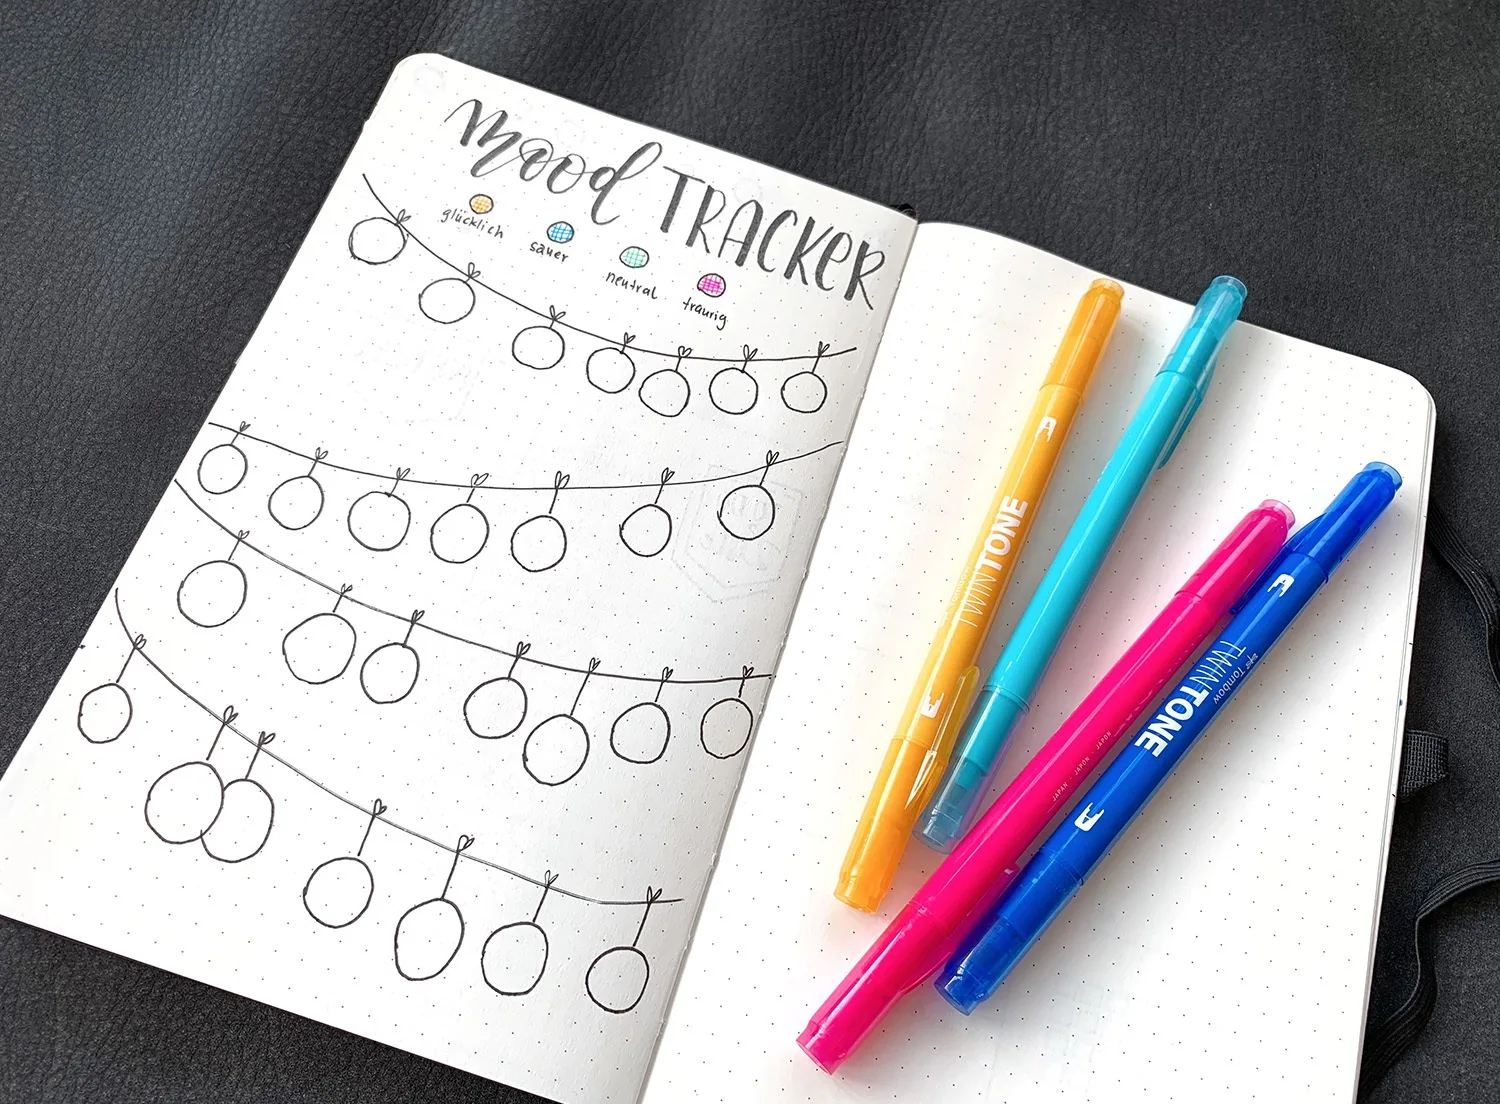 mood TRACKER
glücklich
sauer
neutral
traurig
TWINTONE
Tombow
TWINTONE
JAPAN · JAPÓN · JAPON